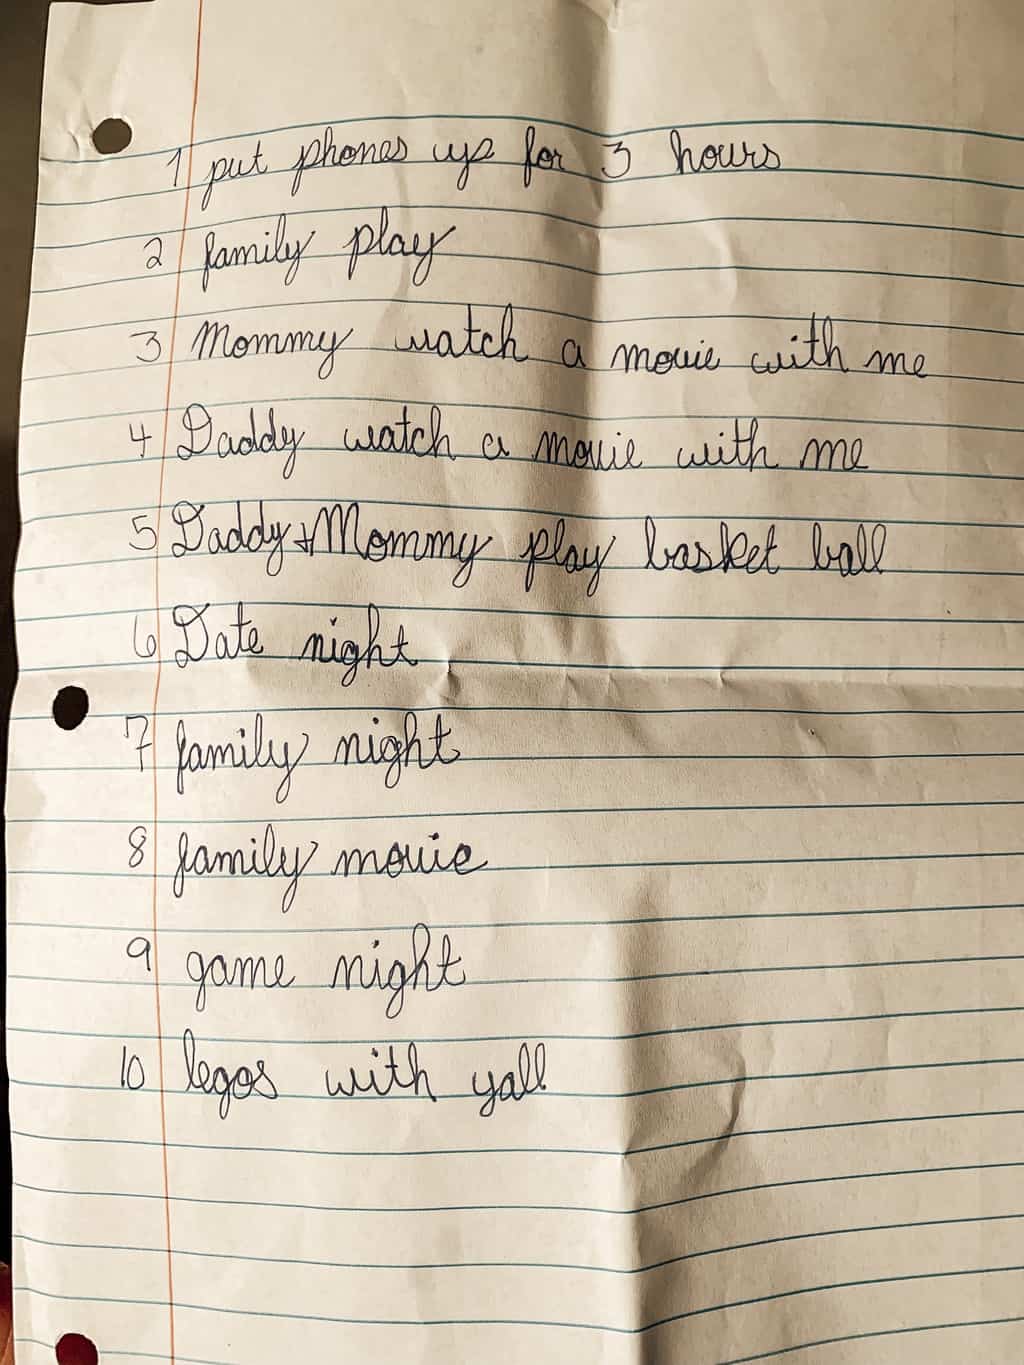 1 put phones up for 3 hours
2 family play
3 Mommy watch a movie with me
4 Daddy watch a movie with me
5 Daddy + Mommy play basket ball
6 Date night
7 family night
8 family movie
9 game night
10 legos with yall